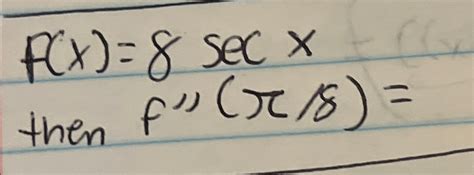 f(x) = 8 sec x
then f''(π/8) =